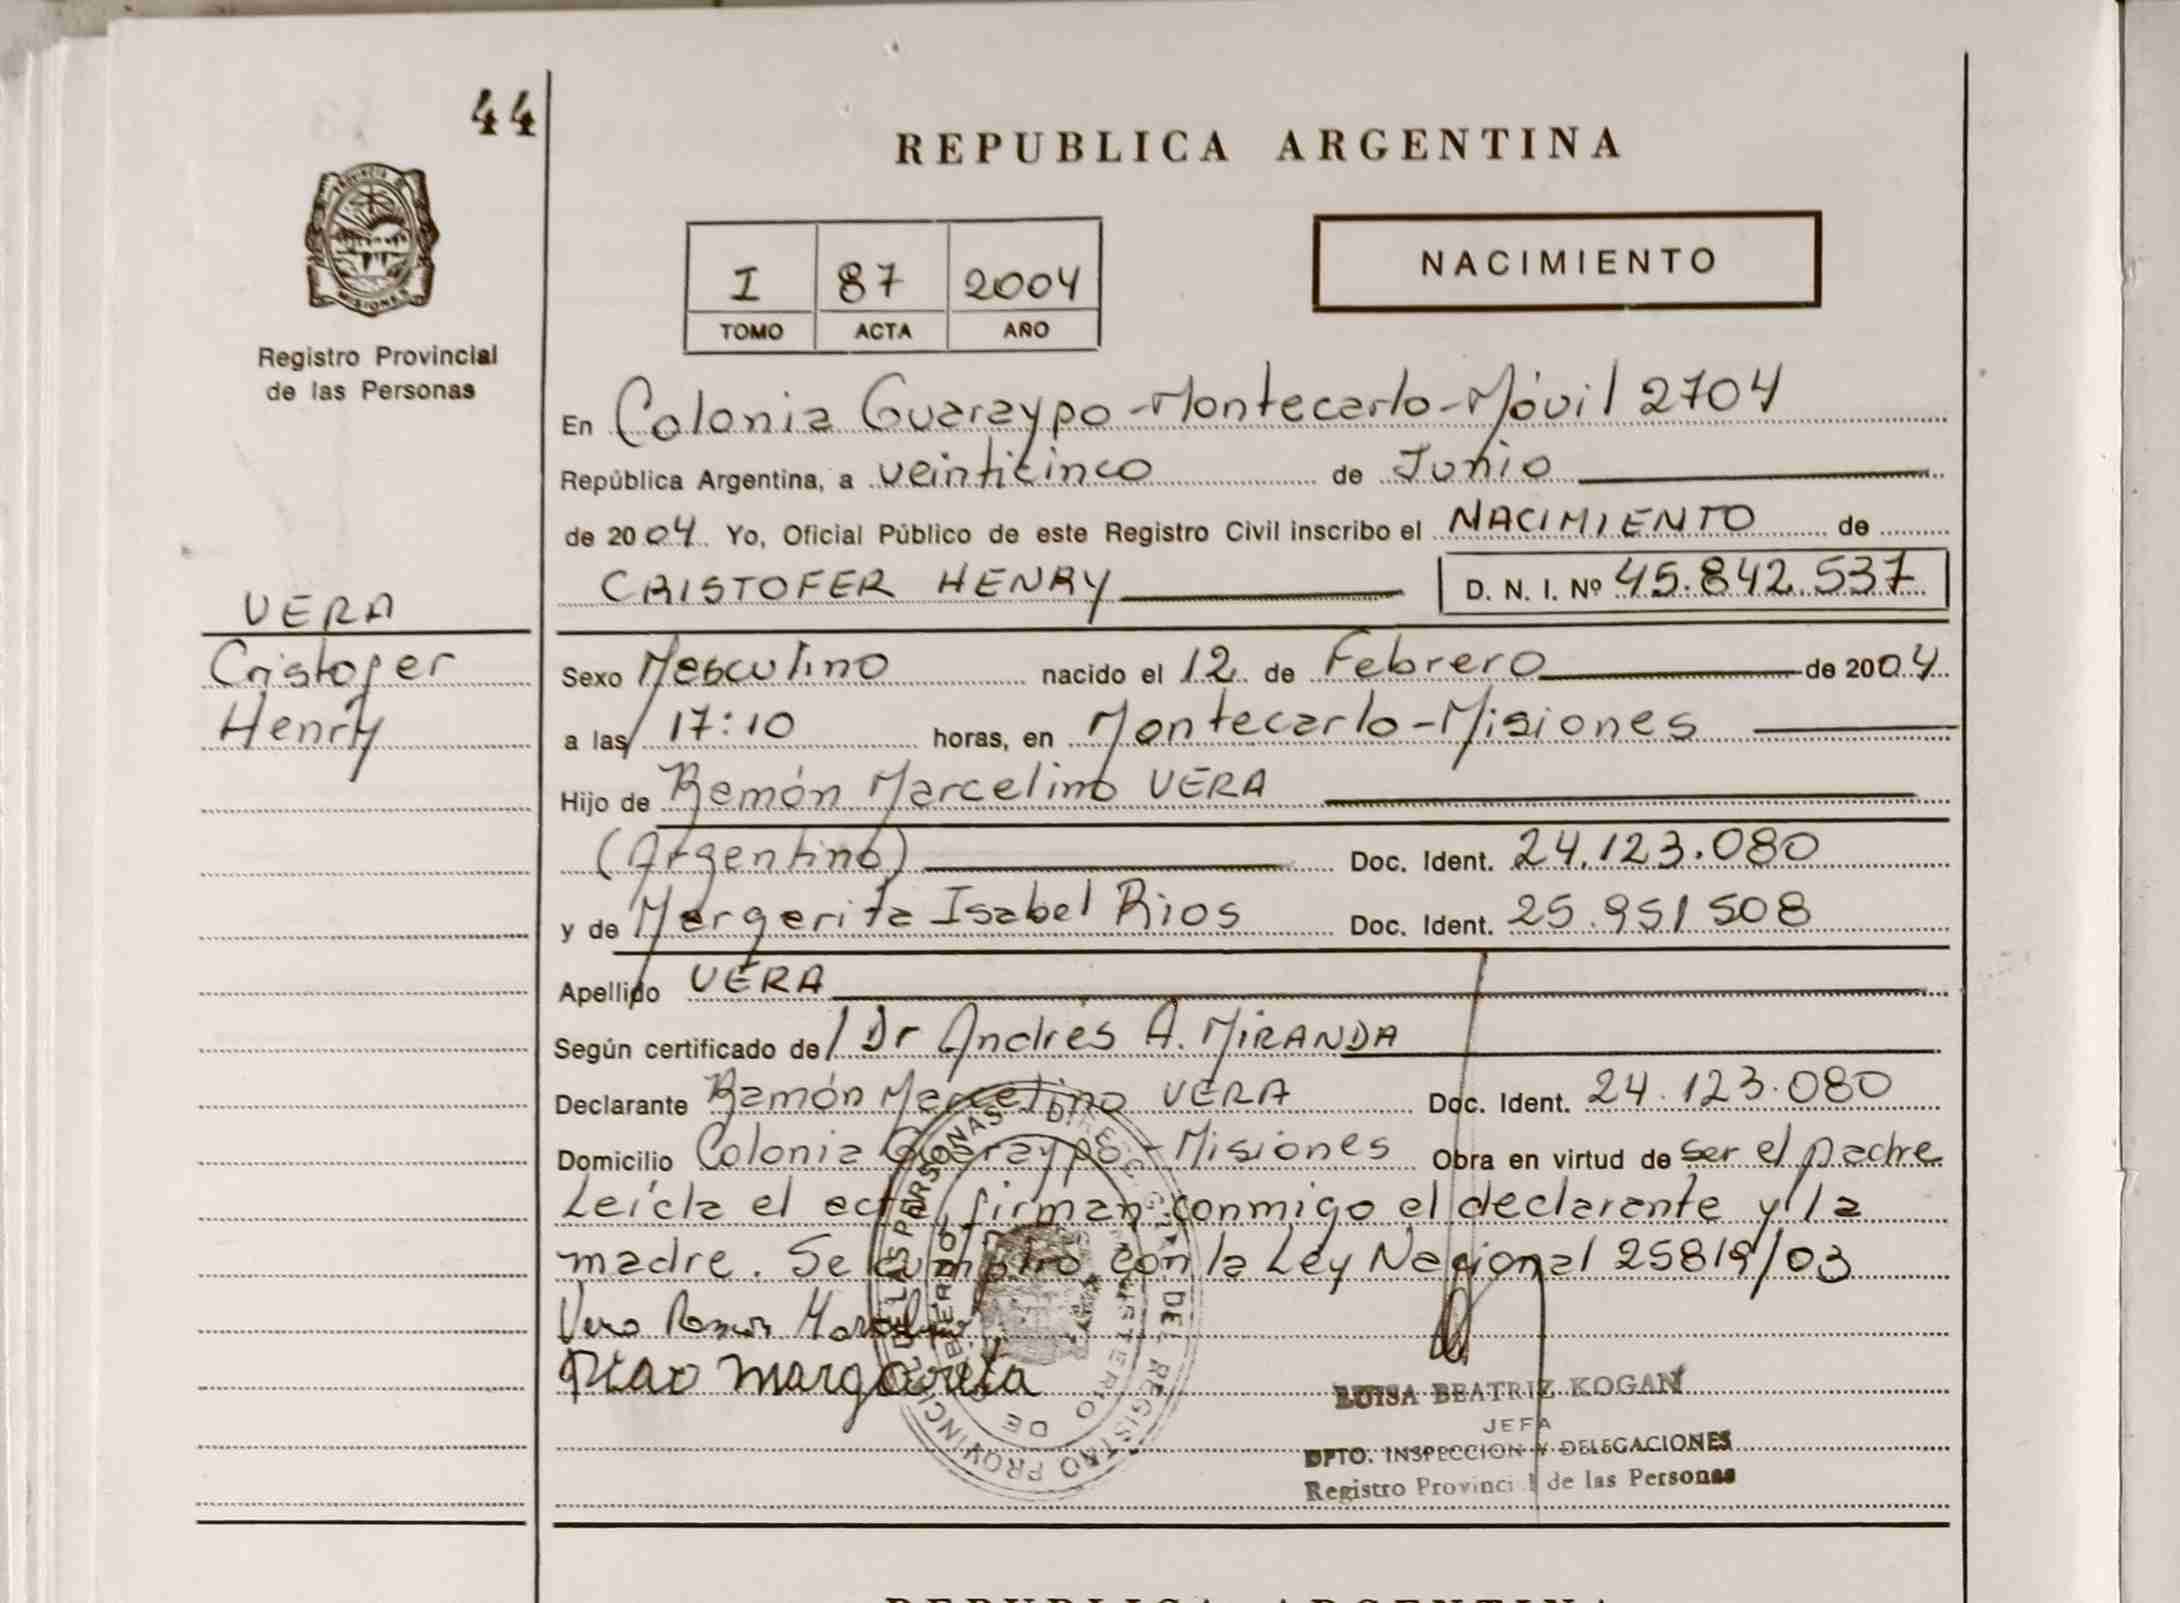 44
REPUBLICA ARGENTINA
PROVINCIA DE
MISIONES
Registro Provincial
de las Personas
I 87 2004
TOMO ACTA AÑO
NACIMIENTO
En Colonia Guaraypo - Montecarlo - Móvil 2704
República Argentina, a veinticinco de Junio
de 2004 Yo, Oficial Público de este Registro Civil inscribo el NACIMIENTO de
CRISTOFER HENRY D. N. I. Nº 45.842.537
VERA
Cristofer
Henry
Sexo Masculino nacido el 12 de Febrero de 2004
a las 17:10 horas, en Montecarlo - Misiones
Hijo de Ramón Marcelino VERA
(Argentino) Doc. Ident. 24.123.080
y de Margarita Isabel Rios Doc. Ident. 25.951508
Apellido VERA
Según certificado de Dr Andrés A. MIRANDA
Declarante Ramón Marcelino VERA Doc. Ident. 24.123.080
Domicilio Colonia Guaraypo - Misiones Obra en virtud de ser el padre
Leída el acta, firman conmigo el declarante y la
madre. Se cumplió con la Ley Nacional 25819/03
Vera Ramon
Margarita
LUISA BEATRIZ KOGAN
JEFA
DPTO. INSPECCION Y DELEGACIONES
Registro Provincial de las Personas
REPUBLICA ARGENTINA